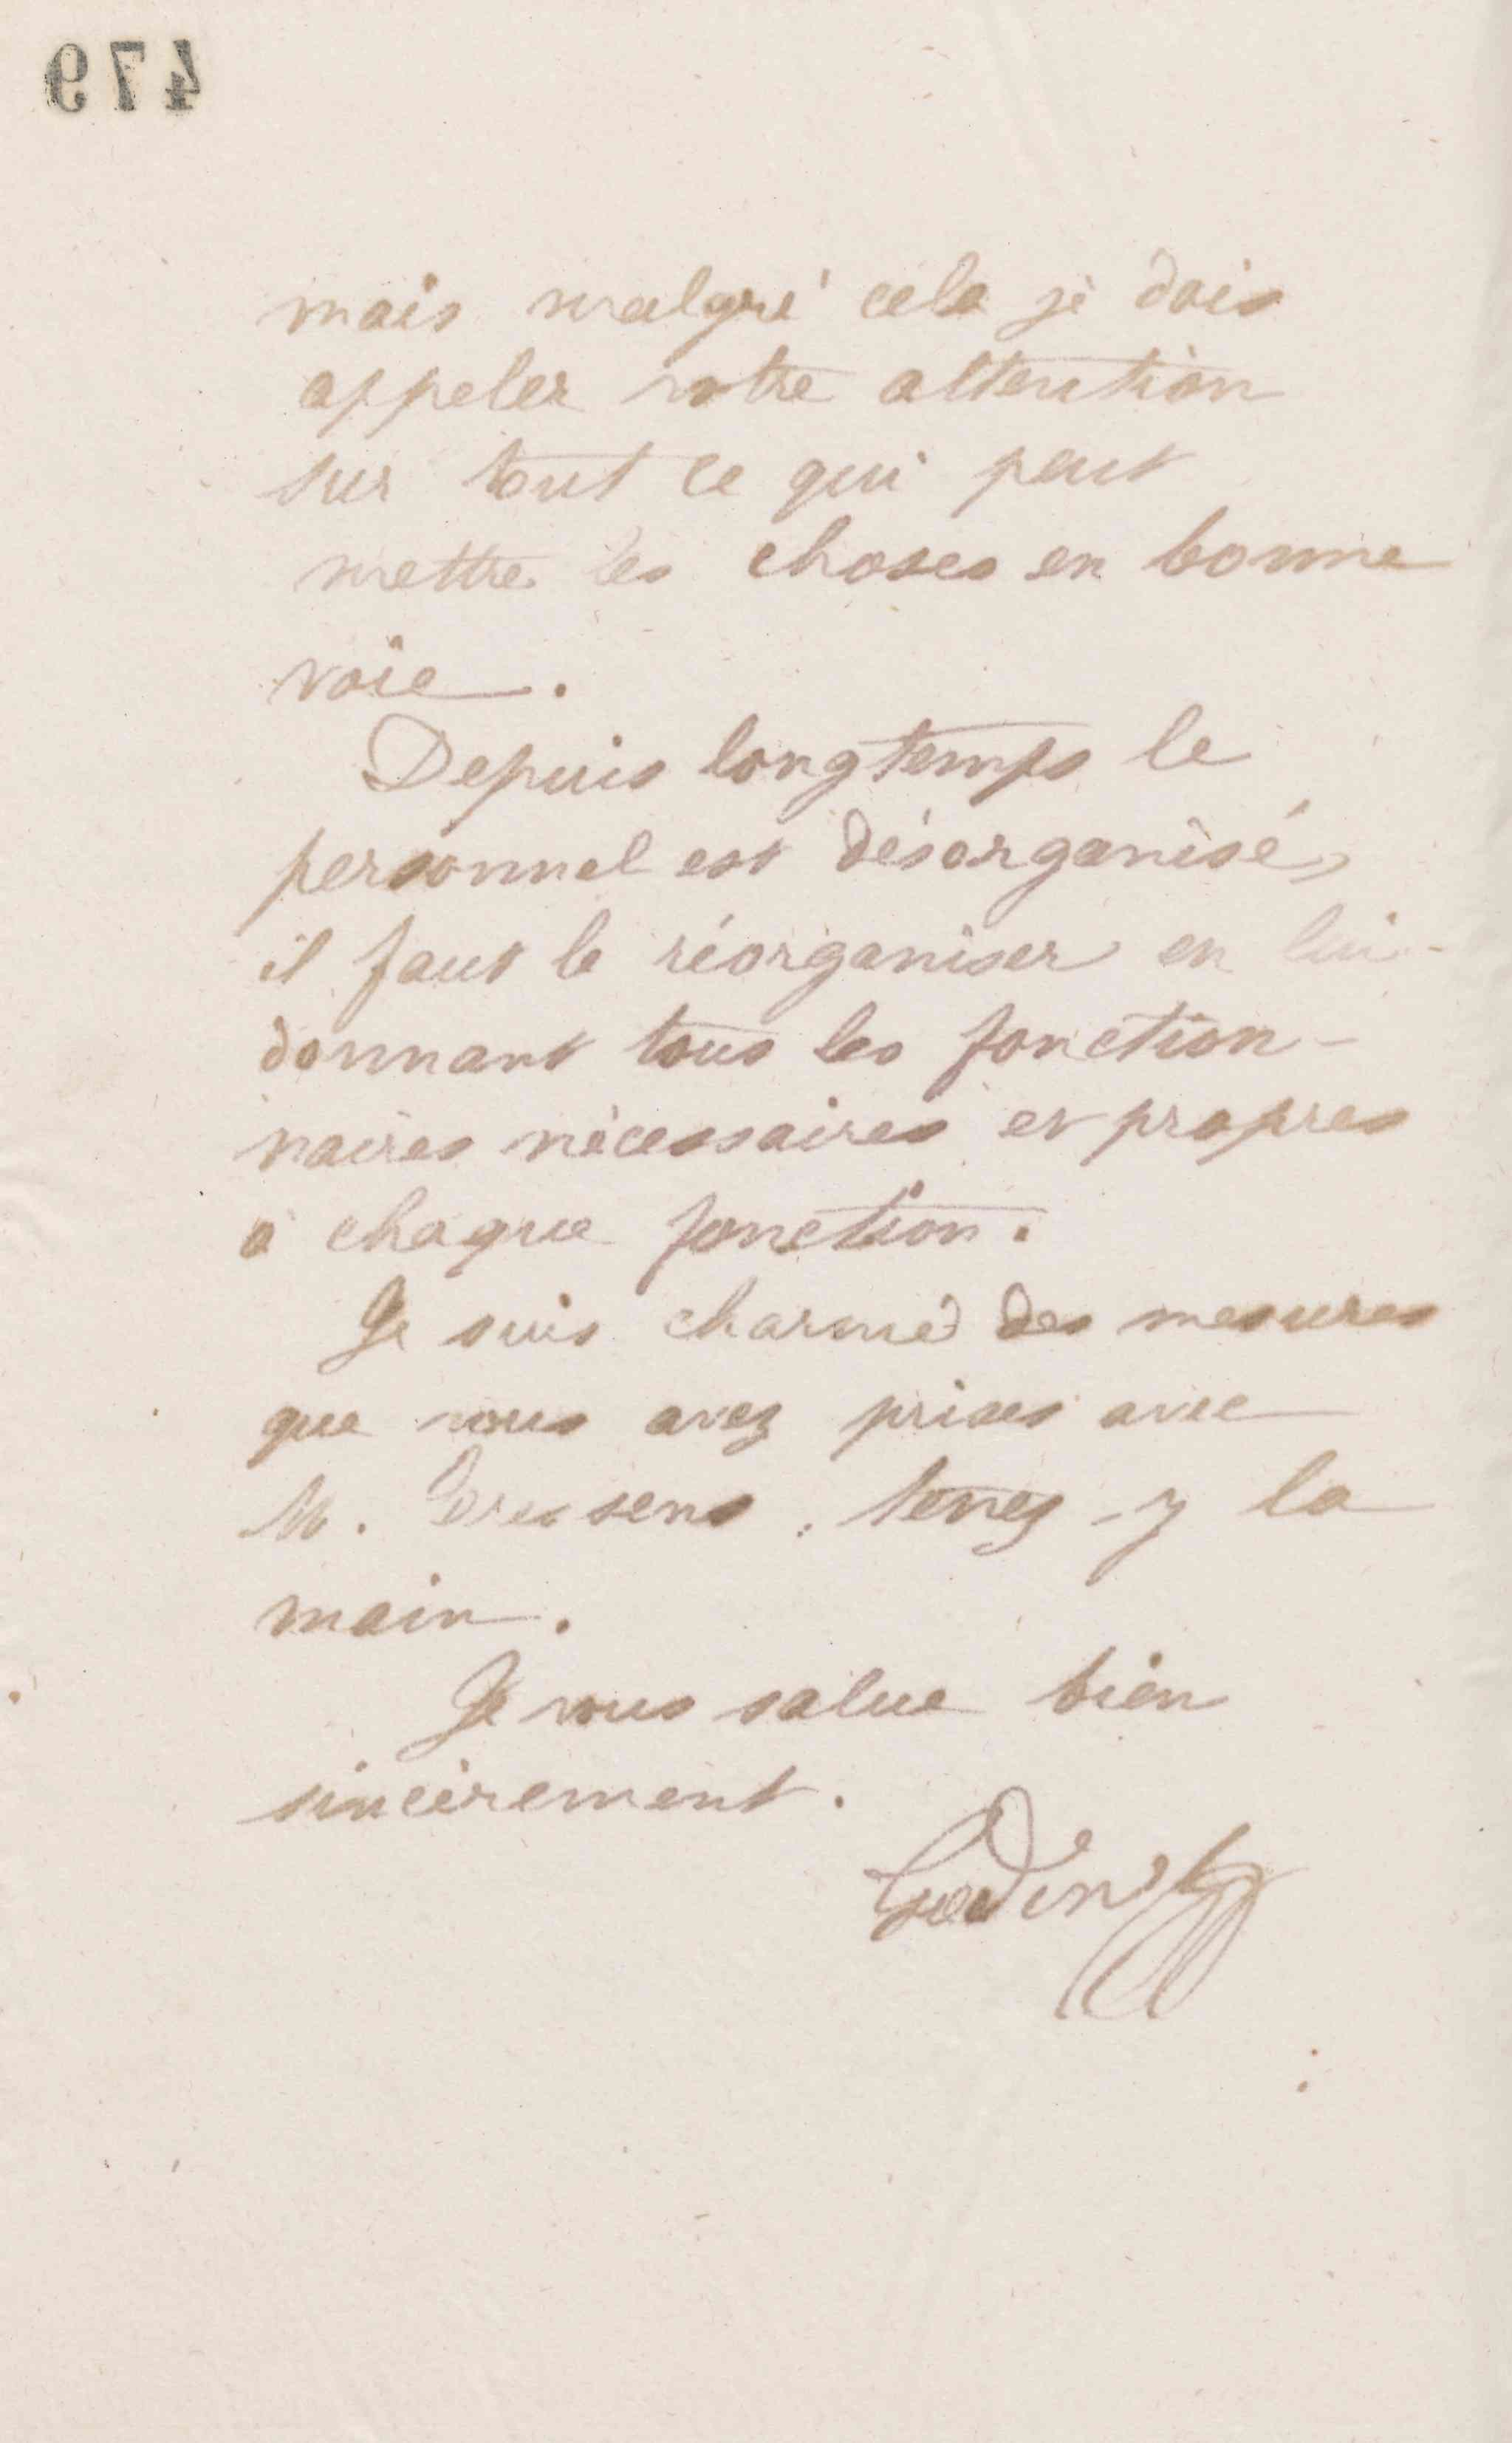 479
mais malgré cela je dois
appeler votre attention
sur tout ce qui peut
mettre les choses en bonne
voie.
Depuis longtemps le
personnel est désorganisé,
il faut le réorganiser en lui
donnant tous les fonction-
naires nécessaires et propres
à chaque fonction.
Je suis charmé des mesures
que vous avez prises avec
M. tenez-y la
main.
Je vous salue bien
sincèrement.
Godin